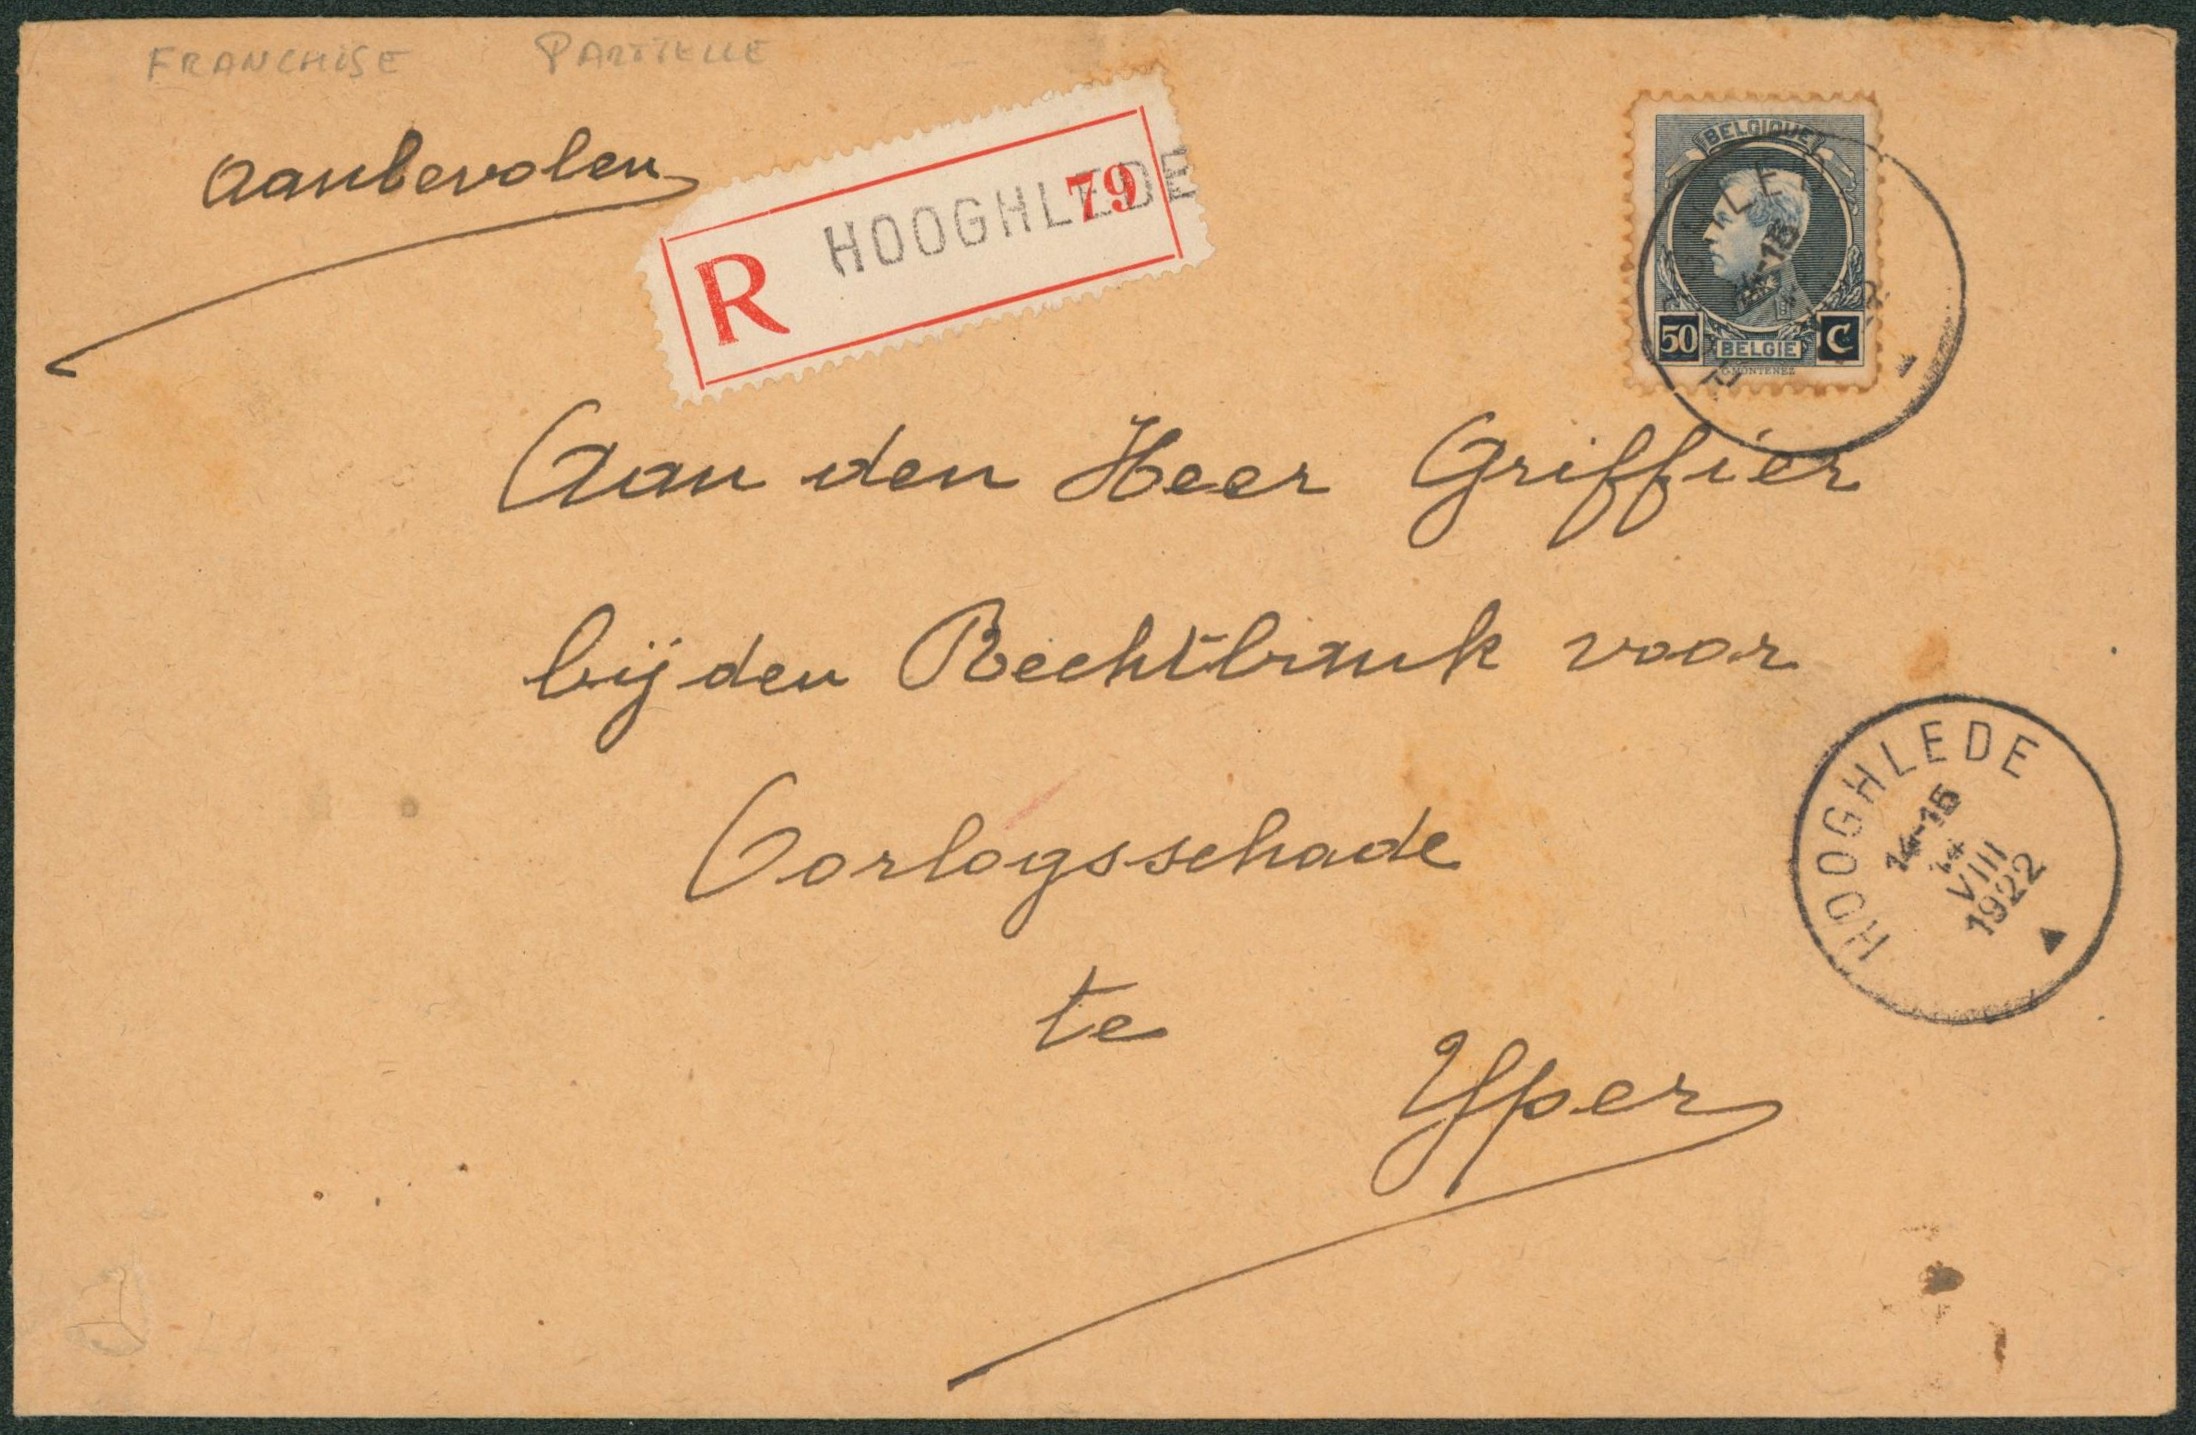 FRANCHISE PARTIELLE
Aanbevolen
R HOOGHLEDE 79
BELGIQUE
14-15
50 C
BELGIE
G. MONTENEZ
Aan den Heer Griffier
bij den Rechtbank voor
Oorlogsschade
te
Yper
HOOGHLEDE
14-15
14
VIII
1922